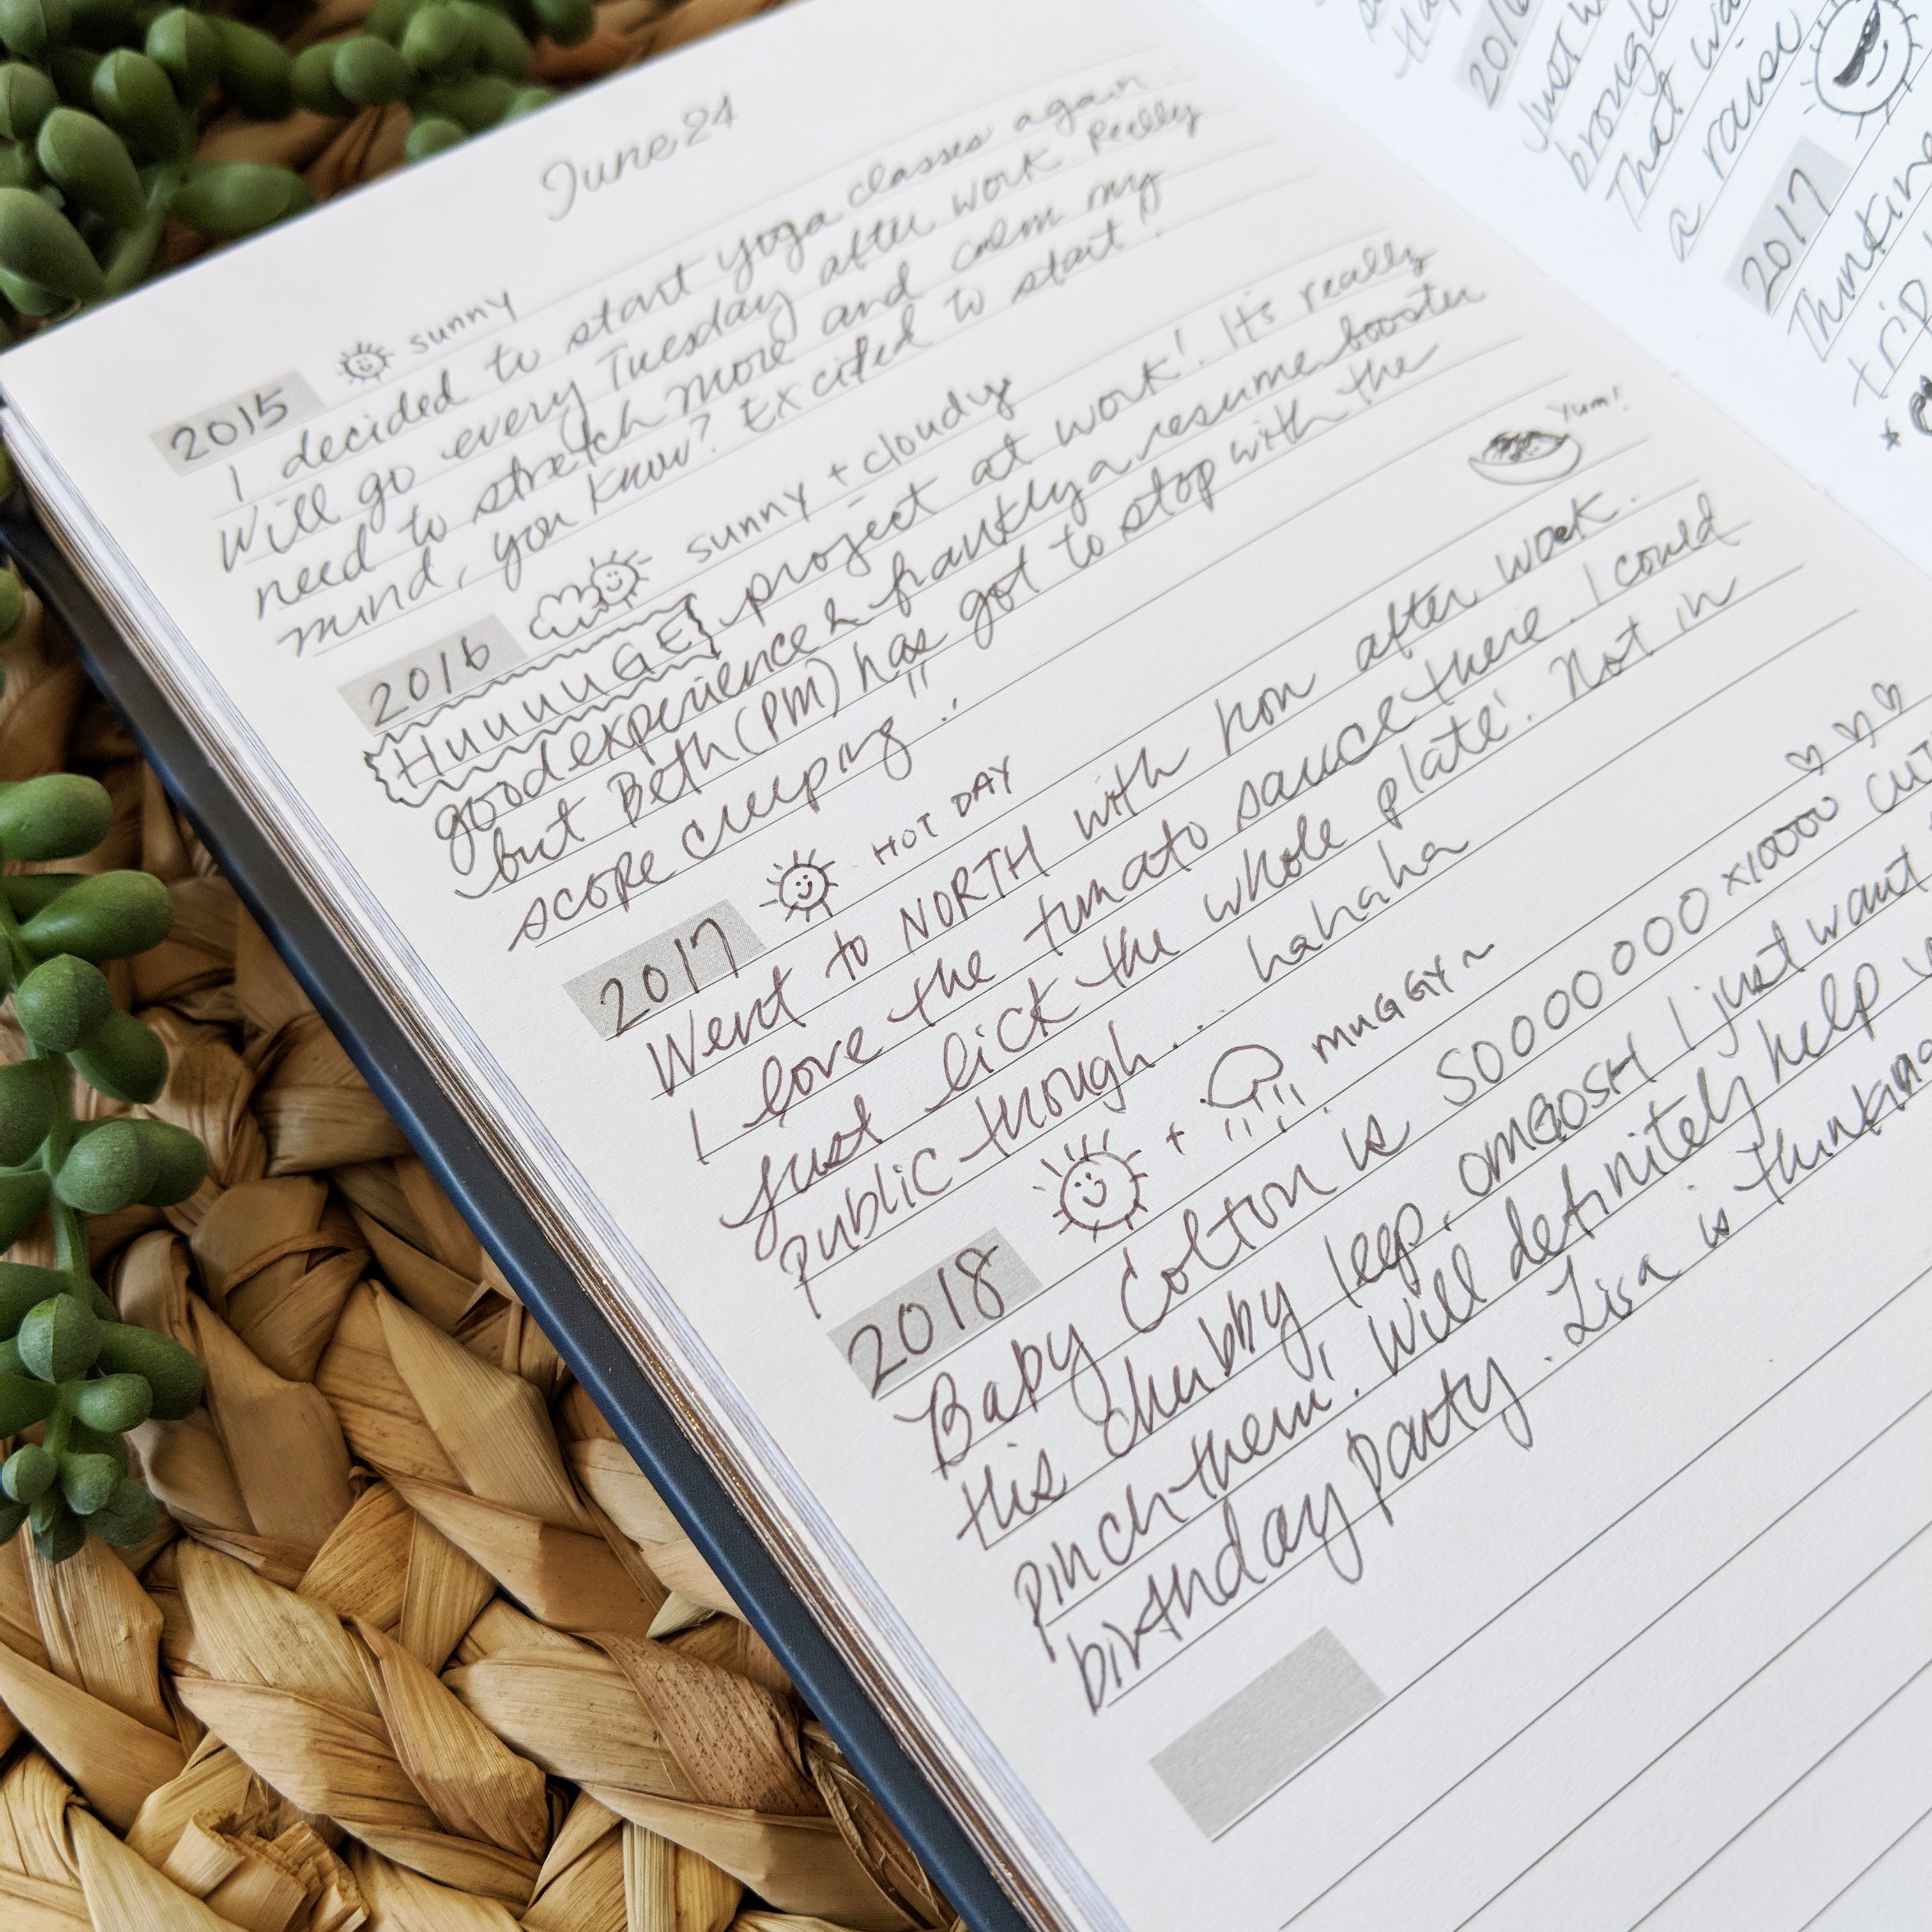 June 24
2015 sunny
I decided to start yoga classes again.
Will go every Tuesday after work. Really
need to stretch more and calm my
mind, you know? Excited to start!
2016 sunny + cloudy
HUUUUGE project at work! It's really
good experience & frankly a resume booster
but Beth (PM) has got to stop with the
scope creeping!!
Yum!
2017 HOT DAY
Went to NORTH with hon after work.
I love the tomato sauce there. I could
just lick the whole plate! Not in
public though... hahaha
2018 + MUGGY~
Baby Colton is SOOOOOOOO x10000
his chubby OMGOSH I just want
pinch them! Will definitely help
birthday party. Lisa is thinking
2016
Just
That
a raise
2017
trip